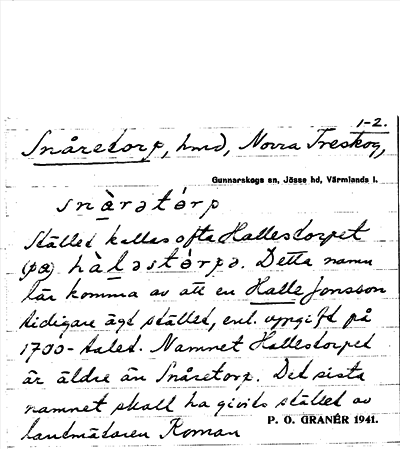 1-2.
Snåretorp, hmd, Norra Treskog,
Gunnarskogs sn, Jösse hd, Värmlands l.
snàrətórp
Stället kallas ofta Hallestorpet
(på) hàləstórpə. Detta namn
lär komma av att en Halle Jonsson
tidigare ägt stället, enl. uppgift på
1700-talet. Namnet Hallestorpet
är äldre än Snåretorp. Det sista
namnet skall ha givits stället av
lantmätaren Roman
P. O. GRANÉR 1941.